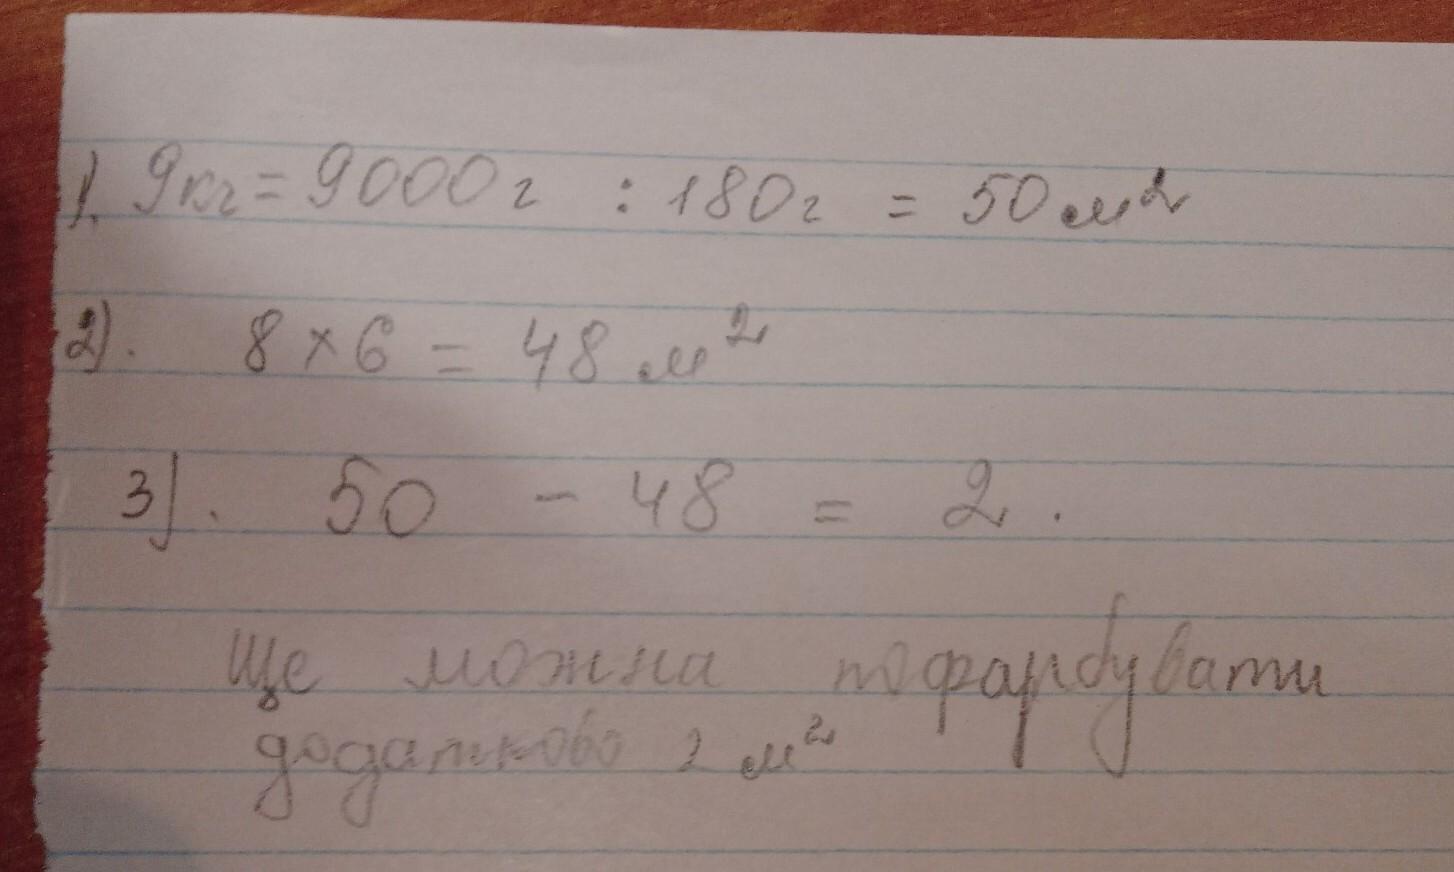 1). 9кг = 9000г : 180г = 50 м²
2). 8 × 6 = 48 м²
3). 50 - 48 = 2.
Ще можна пофарбувати
додатково 2 м²